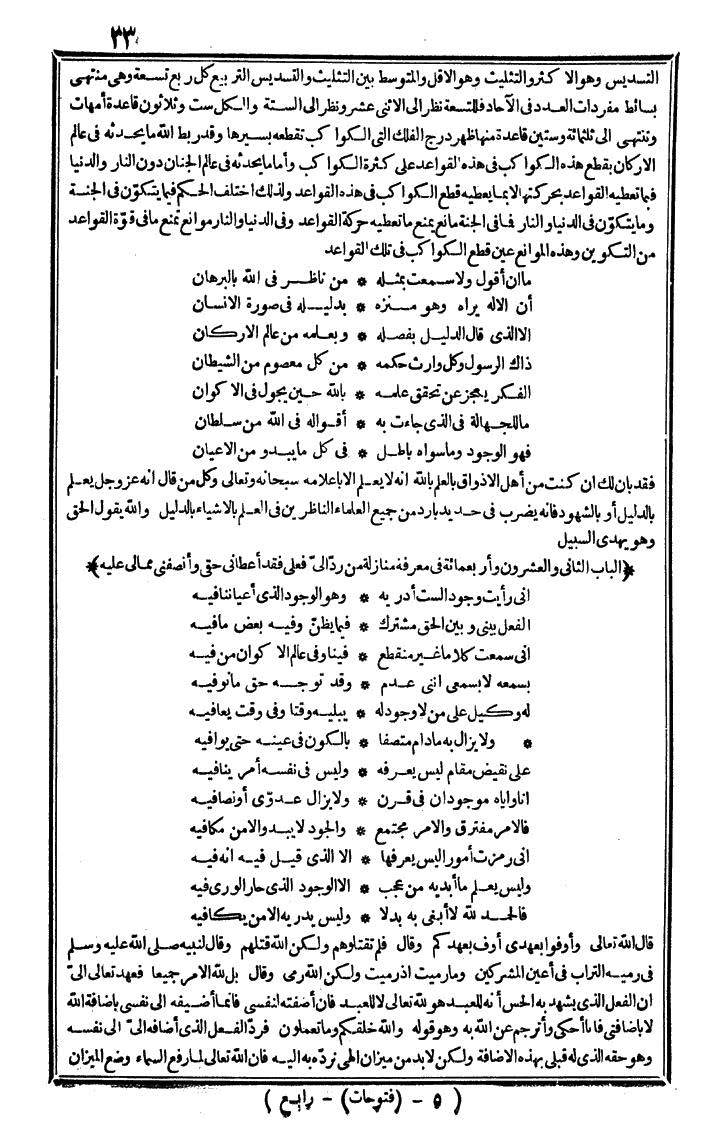 ٣٣
التسديس وهو الاكثر والتثليث وهو الاقل والمتوسط بين التثليث والتسديس التربيع كل ربع تسعة وهى منتهى
بسائط مفردات العدد فى الآحاد فللتسعة نظر الى الاثنى عشر ونظر الى الستة والكل ست وثلاثون قاعدة أمهات
وتنتهى الى ثلثمائة وستين قاعدة منها ظهر درج الفلك التى الكواكب تقطعه بسيرها وقد ربط الله ما يحدثه فى عالم
الاركان بقطع هذه الكواكب فى هذه القواعد على كثرة الكواكب وأما ما يحدثه فى عالم الجنان دون النار والدنيا
فبما تعطيه القواعد بحركتها لا بما يعطيه قطع الكواكب فى هذه القواعد ولذلك اختلف الحكم فيما يتكوّن فى الجنة
وما يتكوّن فى الدنيا والنار فما فى الجنة مانع يمنع ما تعطيه حركة القواعد وفى الدنيا والنار موانع تمنع ما فى قوّة القواعد
من التكوين وهذه الموانع عين قطع الكواكب فى تلك القواعد
ما ان أقول ولا سمعت بمثله * من ناظر فى الله بالبرهان
أن الاله يراه وهو منزه * بدليله فى صورة الانسان
الا الذى قال الدليل بفصله * وبعلمه من عالم الاركان
ذاك الرسول وكل وارث حكمه * من كل معصوم من الشيطان
الفكر يعجز عن تحقق علمه * بالله حين يجول فى الاكوان
ما للجهالة فى الذى جاءت به * أقواله فى الله من سلطان
فهو الوجود وما سواه باطل * فى كل ما يبدو من الاعيان
فقد بان لك ان كنت من أهل الاذواق بالعلم بالله انه لا يعلم الا باعلامه سبحانه وتعالى وكل من قال انه عز وجل يعلم
بالدليل أو بالشهود فانه يضرب فى حديد بارد من جميع العلماء الناظرين فى العلم بالاشياء بالدليل والله يقول الحق
وهو يهدى السبيل
﴿الباب الثانى والعشرون وأربعمائة فى معرفة منازلة من ردّ الىّ فعلى فقد أعطانى حقى وأنصفنى ممالى عليه﴾
انى رأيت وجود الست أدريه * وهو الوجود الذى أعياننا فيه
الفعل بينى وبين الحق مشترك * فيما يظنّ وفيه بعض ما فيه
انى سمعت كلاما غير منقطع * فينا وفى عالم الاكوان من فيه
بسمعه لا بسمعى اننى عدم * وقد توجه حق ما نوفيه
له وكيل على من لا وجود له * يبليه وقتا وفى وقت يعافيه
* ولا يزال به مادام متصفا * بالكون فى عينه حتى يوافيه
على نقيض مقام ليس يعرفه * وليس فى نفسه أمر ينافيه
انا واياه موجودان فى قرن * ولا يزال عدوّى أو نصافيه
فالامر مفترق والامر مجتمع * والجود لا يبدو الا من مكافيه
انى رمزت أمورا ليس يعرفها * الا الذى قيل فيه انه فيه
وليس يعلم ما أبديه من عجب * الا الوجود الذى حار الورى فيه
فالحمد لله لا أبغى به بدلا * وليس يدريه الا من يكافيه
قال الله تعالى وأوفوا بعهدى أوف بعهدكم وقال فلم تقتلوهم ولكن الله قتلهم وقال لنبيه صلى الله عليه وسلم
فى رميه التراب فى أعين المشركين وما رميت اذ رميت ولكن الله رمى وقال بل لله الامر جميعا فعهد تعالى الىّ
ان الفعل الذى يشهد به الحس أنه للعبد هو لله تعالى لا للعبد فان أضفته لنفسى فانما أضيفه الى نفسى باضافة الله
لا باضافتى فانا أحكى وأترجم عن الله به وهو قوله والله خلقكم وما تعملون فردّ الفعل الذى أضافه الىّ الى نفسه
وهو حقه الذى له قبلى بهذه الاضافة ولكن لا بد من ميزان الهى نردّه به اليه فان الله تعالى لما رفع السماء وضع الميزان
( ٥ - (فتوحات) - رابع )